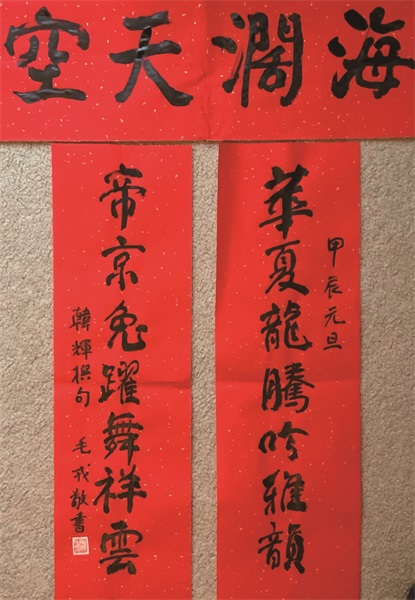 海濶天空
甲辰元旦
華夏龍騰吟雅韻
帝京兔躍舞祥雲
韓輝撰句 毛戎敬書